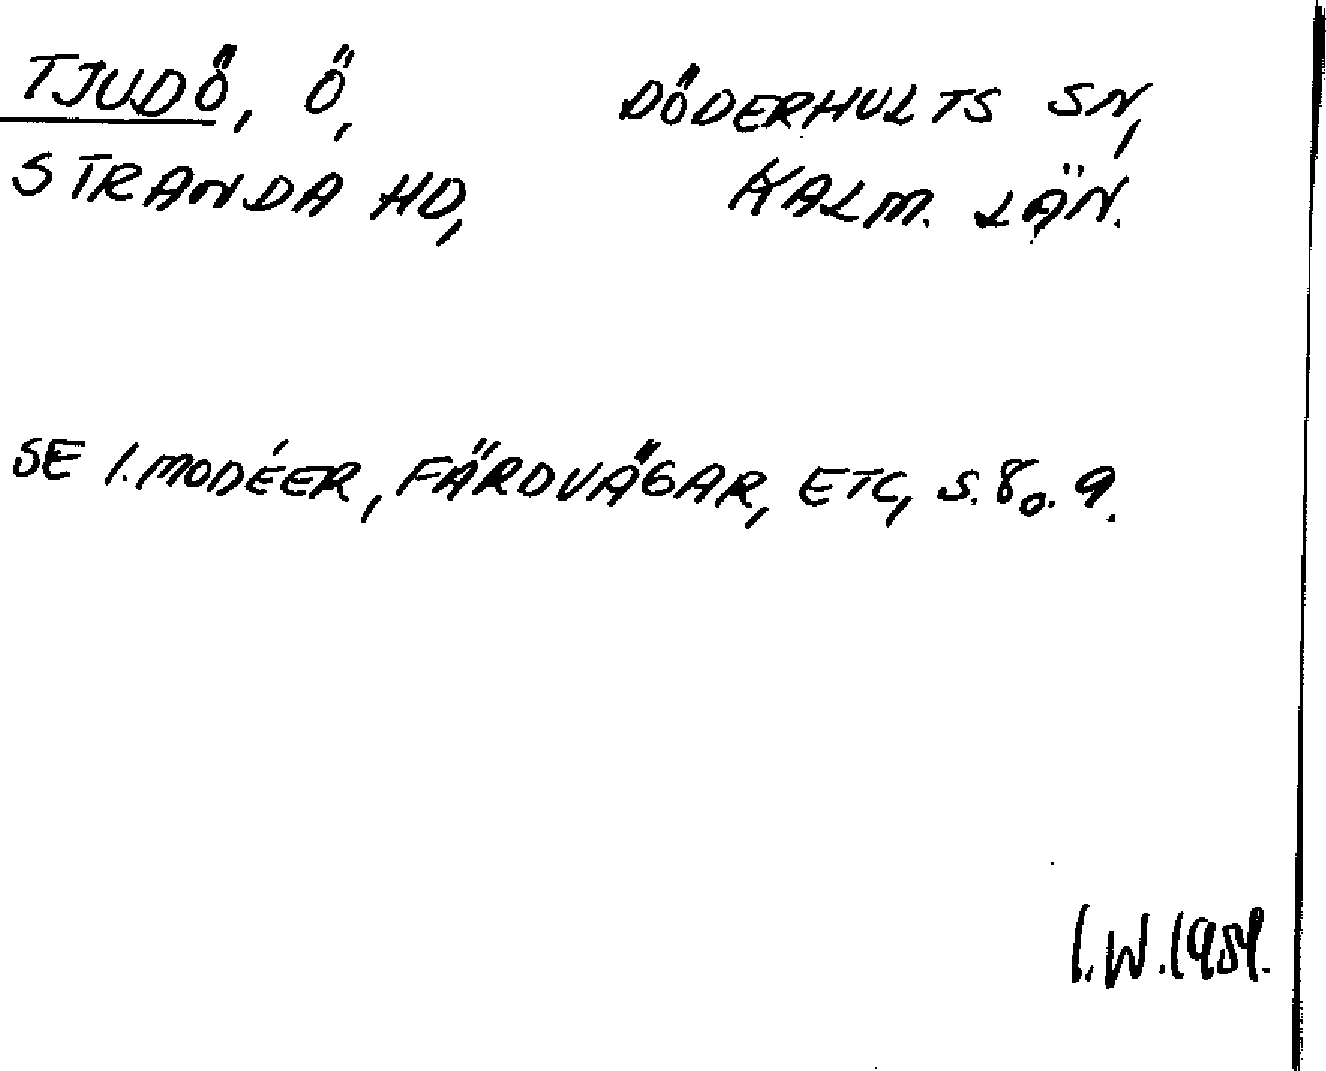 TJUDÖ, Ö, DÖDERHULTS SN,
STRANDA HD, KALM. LÄN.
SE I. MODÉER, FÄRDVÄGAR, ETC, S. 8 o. 9.
I. W. 1959.